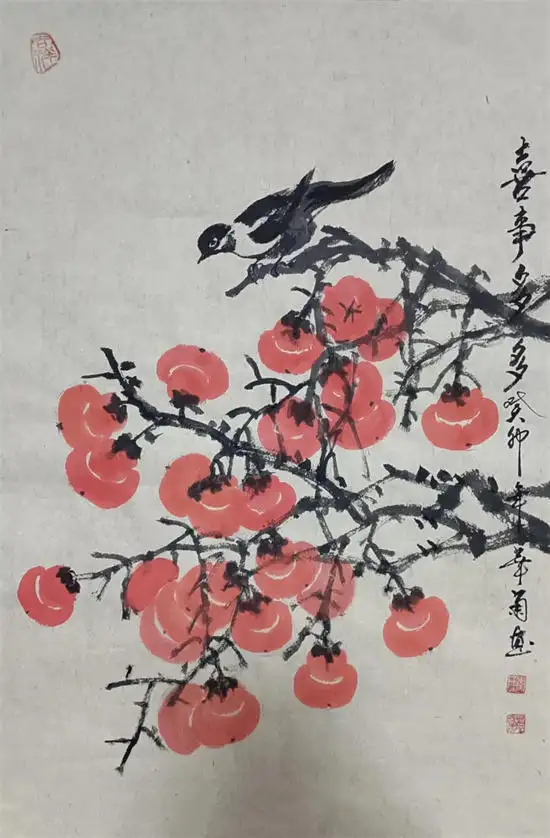 喜事多多癸卯年華菊画